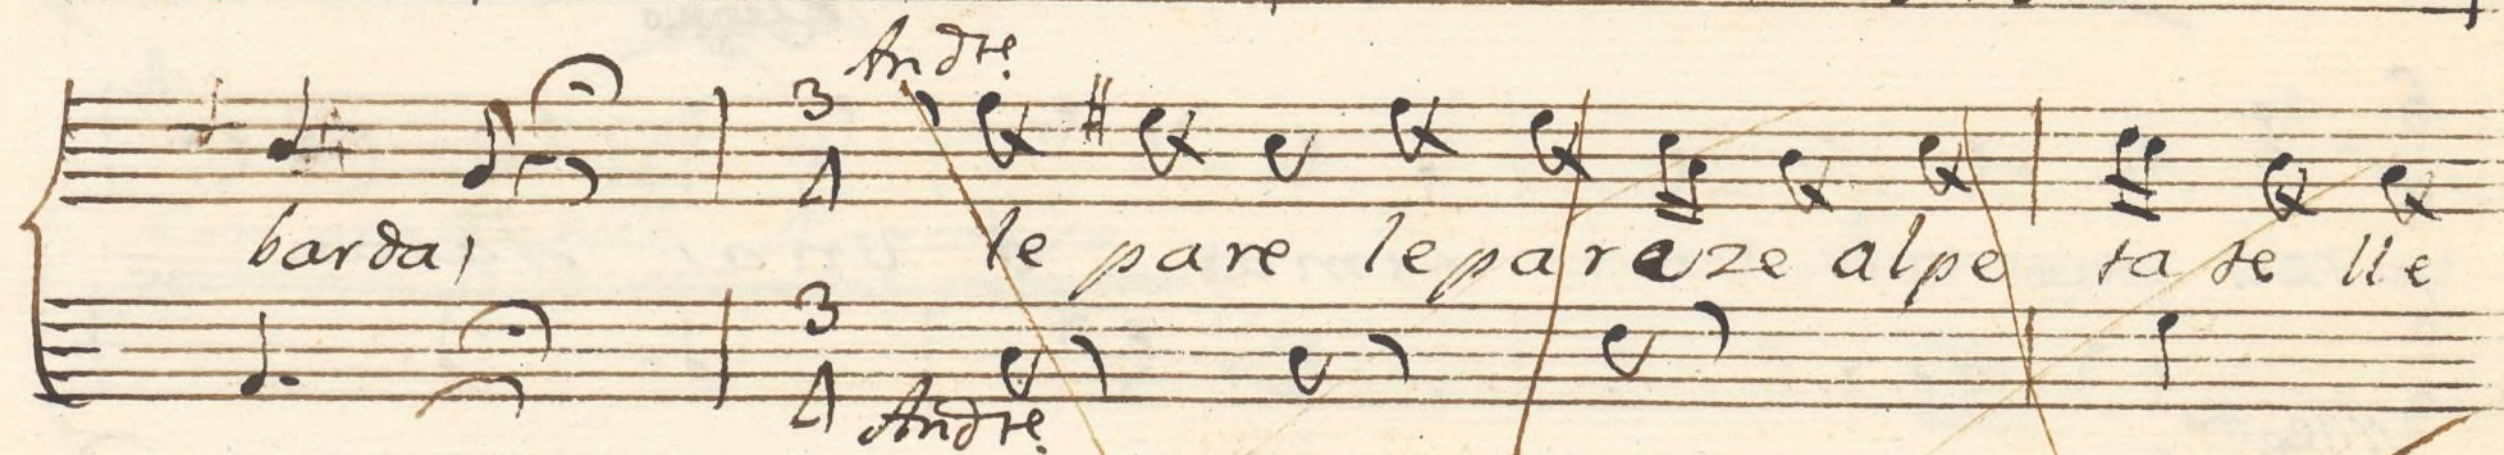 Andte.
3
4
barda;
le pare le paraze alpe ta te lle
3
4
Andte.